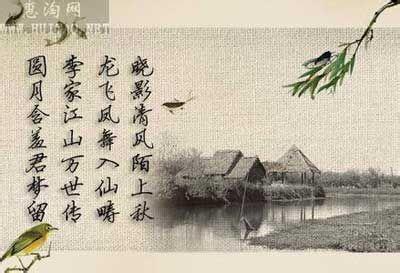 惠沟网
晓影清风陌上秋
龙飞凤舞入仙畴
李家江山万世传
圆月含羞君梦留